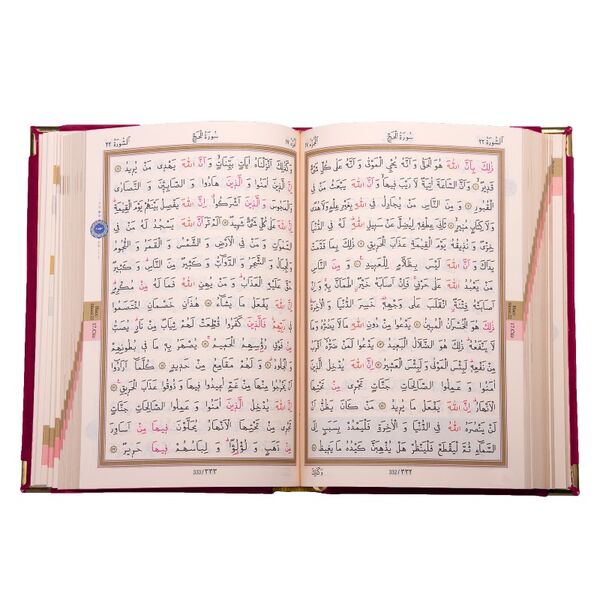 اَلسُّورَةُ ٢٢
سُورَةُ الْحَجِّ
اَلْجُزْءُ ١٧
ذٰلِكَ بِاَنَّ اللّٰهَ هُوَ الْحَقُّ وَاَنَّهُ يُحْيِ الْمَوْتٰى وَاَنَّهُ عَلٰى كُلِّ شَيْءٍ
قَدِيرٌ وَاَنَّ السَّاعَةَ اٰتِيَةٌ لَا رَيْبَ فِيهَا وَاَنَّ اللّٰهَ يَبْعَثُ مَنْ فِي
الْقُبُورِ وَمِنَ النَّاسِ مَنْ يُجَادِلُ فِي اللّٰهِ بِغَيْرِ عِلْمٍ وَلَا هُدًى
وَلَا كِتَابٍ مُنِيرٍ ثَانِيَ عِطْفِهِ لِيُضِلَّ عَنْ سَبِيلِ اللّٰهِ لَهُ فِي الدُّنْيَا
خِزْيٌ وَنُذِيقُهُ يَوْمَ الْقِيٰمَةِ عَذَابَ الْحَرِيقِ ذٰلِكَ بِمَا قَدَّمَتْ
يَدَاكَ وَاَنَّ اللّٰهَ لَيْسَ بِظَلَّامٍ لِلْعَبِيدِ وَمِنَ النَّاسِ
مَنْ يَعْبُدُ اللّٰهَ عَلٰى حَرْفٍ فَاِنْ اَصَابَهُ خَيْرٌ اطْمَاَنَّ بِهِ وَاِنْ
اَصَابَتْهُ فِتْنَةٌ انْقَلَبَ عَلٰى وَجْهِهِ خَسِرَ الدُّنْيَا وَالْاٰخِرَةَ
ذٰلِكَ هُوَ الْخُسْرَانُ الْمُبِينُ يَدْعُوا مِنْ دُونِ اللّٰهِ مَا لَا يَضُرُّهُ وَمَا
لَا يَنْفَعُهُ ذٰلِكَ هُوَ الضَّلَالُ الْبَعِيدُ يَدْعُوا لَمَنْ ضَرُّهُ اَقْرَبُ
مِنْ نَفْعِهِ لَبِئْسَ الْمَوْلٰى وَلَبِئْسَ الْعَشِيرُ اِنَّ اللّٰهَ يُدْخِلُ
الَّذِينَ اٰمَنُوا وَعَمِلُوا الصَّالِحَاتِ جَنَّاتٍ تَجْرِي مِنْ تَحْتِهَا
الْاَنْهَارُ اِنَّ اللّٰهَ يَفْعَلُ مَا يُرِيدُ مَنْ كَانَ يَظُنُّ اَنْ
لَنْ يَنْصُرَهُ اللّٰهُ فِي الدُّنْيَا وَالْاٰخِرَةِ فَلْيَمْدُدْ بِسَبَبٍ اِلَى
السَّمَاءِ ثُمَّ لْيَقْطَعْ فَلْيَنْظُرْ هَلْ يُذْهِبَنَّ كَيْدُهُ مَا يَغِيظُ
332/٣٣٢
وَكَذٰلِكَ
17.Cüz
اَلسُّورَةُ ٢٢
سُورَةُ الْحَجِّ
اَلْجُزْءُ ١٧
وَكَذٰلِكَ اَنْزَلْنَاهُ اٰيَاتٍ بَيِّنَاتٍ وَاَنَّ اللّٰهَ يَهْدِي مَنْ يُرِيدُ
اِنَّ الَّذِينَ اٰمَنُوا وَالَّذِينَ هَادُوا وَالصَّابِئِينَ وَالنَّصَارٰى
وَالْمَجُوسَ وَالَّذِينَ اَشْرَكُوا اِنَّ اللّٰهَ يَفْصِلُ بَيْنَهُمْ يَوْمَ الْقِيٰمَةِ
اِنَّ اللّٰهَ عَلٰى كُلِّ شَيْءٍ شَهِيدٌ اَلَمْ تَرَ اَنَّ اللّٰهَ يَسْجُدُ لَهُ مَنْ فِي
السَّمٰوَاتِ وَمَنْ فِي الْاَرْضِ وَالشَّمْسُ وَالْقَمَرُ وَالنُّجُومُ
وَالْجِبَالُ وَالشَّجَرُ وَالدَّوَابُّ وَكَثِيرٌ مِنَ النَّاسِ وَكَثِيرٌ
حَقَّ عَلَيْهِ الْعَذَابُ وَمَنْ يُهِنِ اللّٰهُ فَمَا لَهُ مِنْ مُكْرِمٍ
اِنَّ اللّٰهَ يَفْعَلُ مَا يَشَاءُ هٰذَانِ خَصْمَانِ اخْتَصَمُوا
فِي رَبِّهِمْ فَالَّذِينَ كَفَرُوا قُطِّعَتْ لَهُمْ ثِيَابٌ مِنْ نَارٍ يُصَبُّ
مِنْ فَوْقِ رُؤُسِهِمُ الْحَمِيمُ يُصْهَرُ بِهِ مَا فِي بُطُونِهِمْ
وَالْجُلُودُ وَلَهُمْ مَقَامِعُ مِنْ حَدِيدٍ كُلَّمَا اَرَادُوا
اَنْ يَخْرُجُوا مِنْهَا مِنْ غَمٍّ اُعِيدُوا فِيهَا وَذُوقُوا عَذَابَ الْحَرِيقِ
اِنَّ اللّٰهَ يُدْخِلُ الَّذِينَ اٰمَنُوا وَعَمِلُوا الصَّالِحَاتِ جَنَّاتٍ
تَجْرِي مِنْ تَحْتِهَا الْاَنْهَارُ يُحَلَّوْنَ فِيهَا مِنْ اَسَاوِرَ
مِنْ ذَهَبٍ وَلُؤْلُؤًا وَلِبَاسُهُمْ فِيهَا حَرِيرٌ
333/٣٣٣
17.Cüz